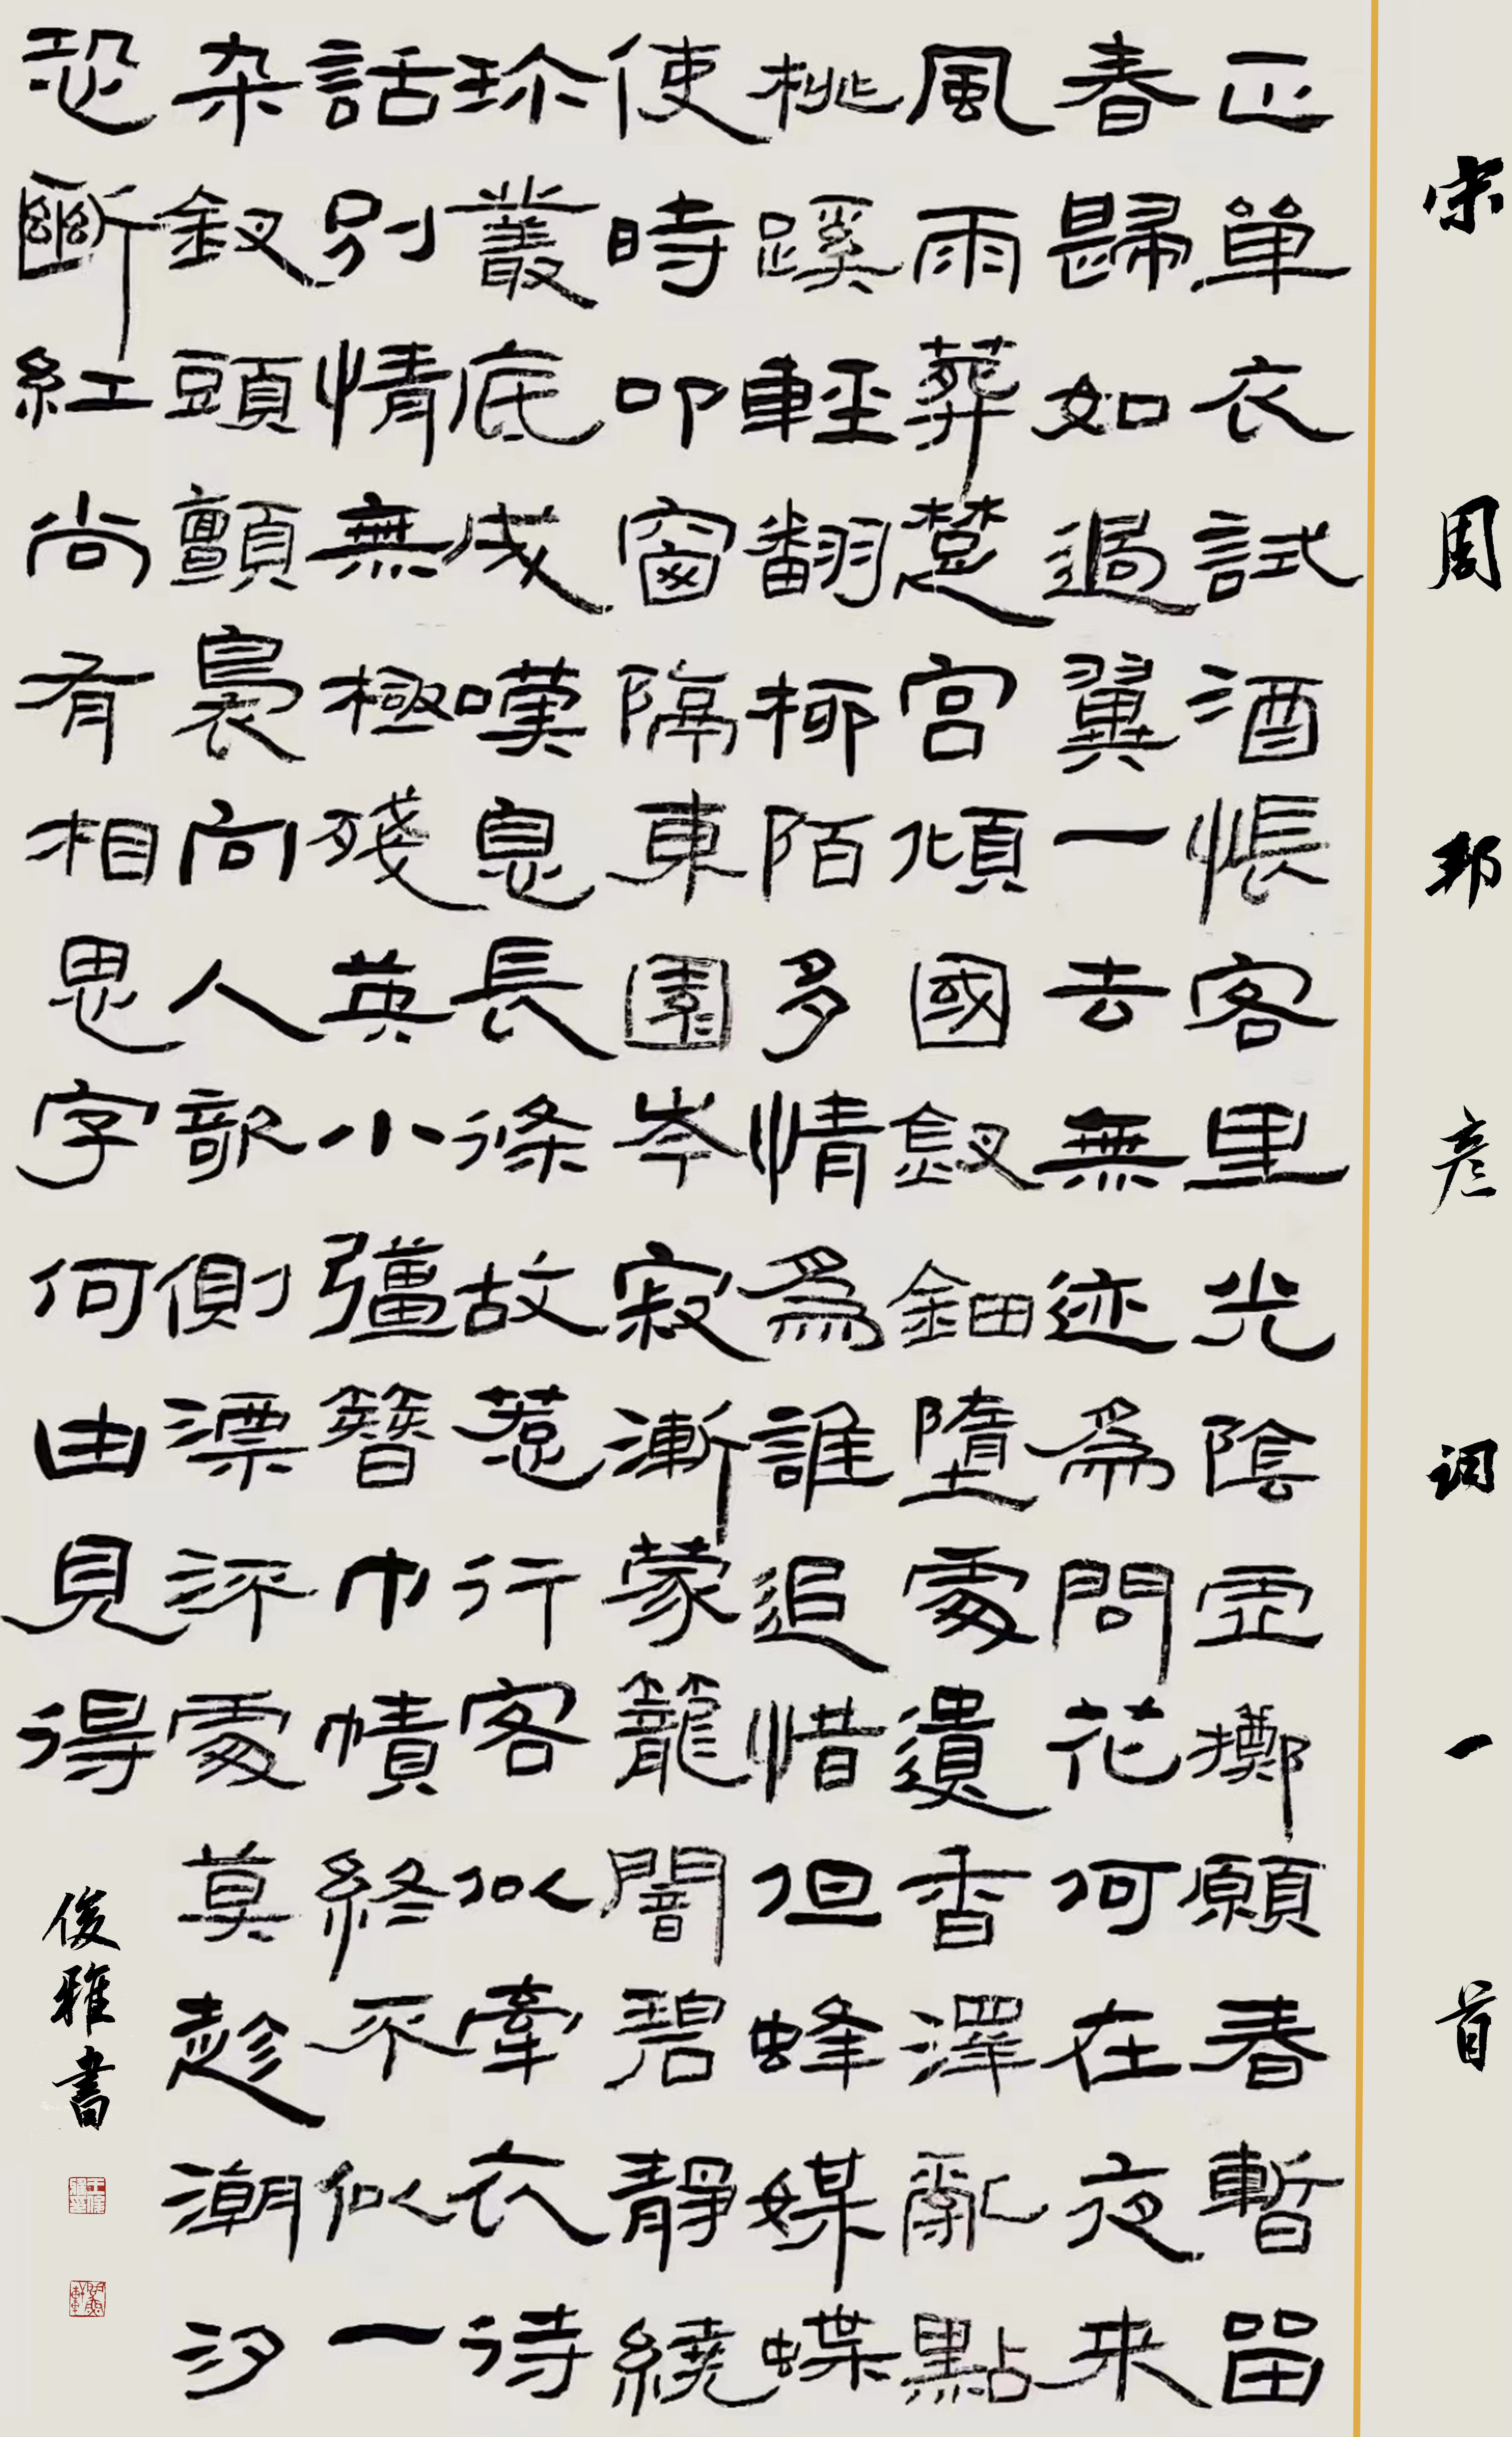 宋周邦彥词一首
正單衣試酒悵客里光陰虛擲願春暫留
春歸如過翼一去無迹為問花何在夜來
風雨葬楚宮傾國釵鈿墮處遺香澤亂點
桃蹊輕翻柳陌多情為誰追惜但蜂媒蝶
使時叩窗隔東園岑寂漸蒙籠闇碧靜繞
珍叢底成嘆息長條故惹行客似牽衣待
話別情無極殘英小彊簪巾幘終不似一
朵釵頭顫裊向人欹側漂流處莫趁潮汐
恐斷紅尚有相思字何由見得
俊雅書